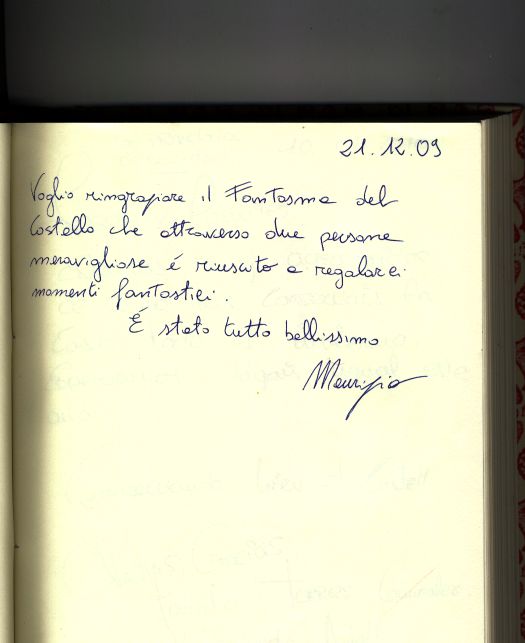 21.12.09
Voglio ringraziare il Fantasma del
Castello che attraverso due persone
meravigliose é riuscito a regalarci
momenti fantastici.
É stato tutto bellissimo
Maurizio